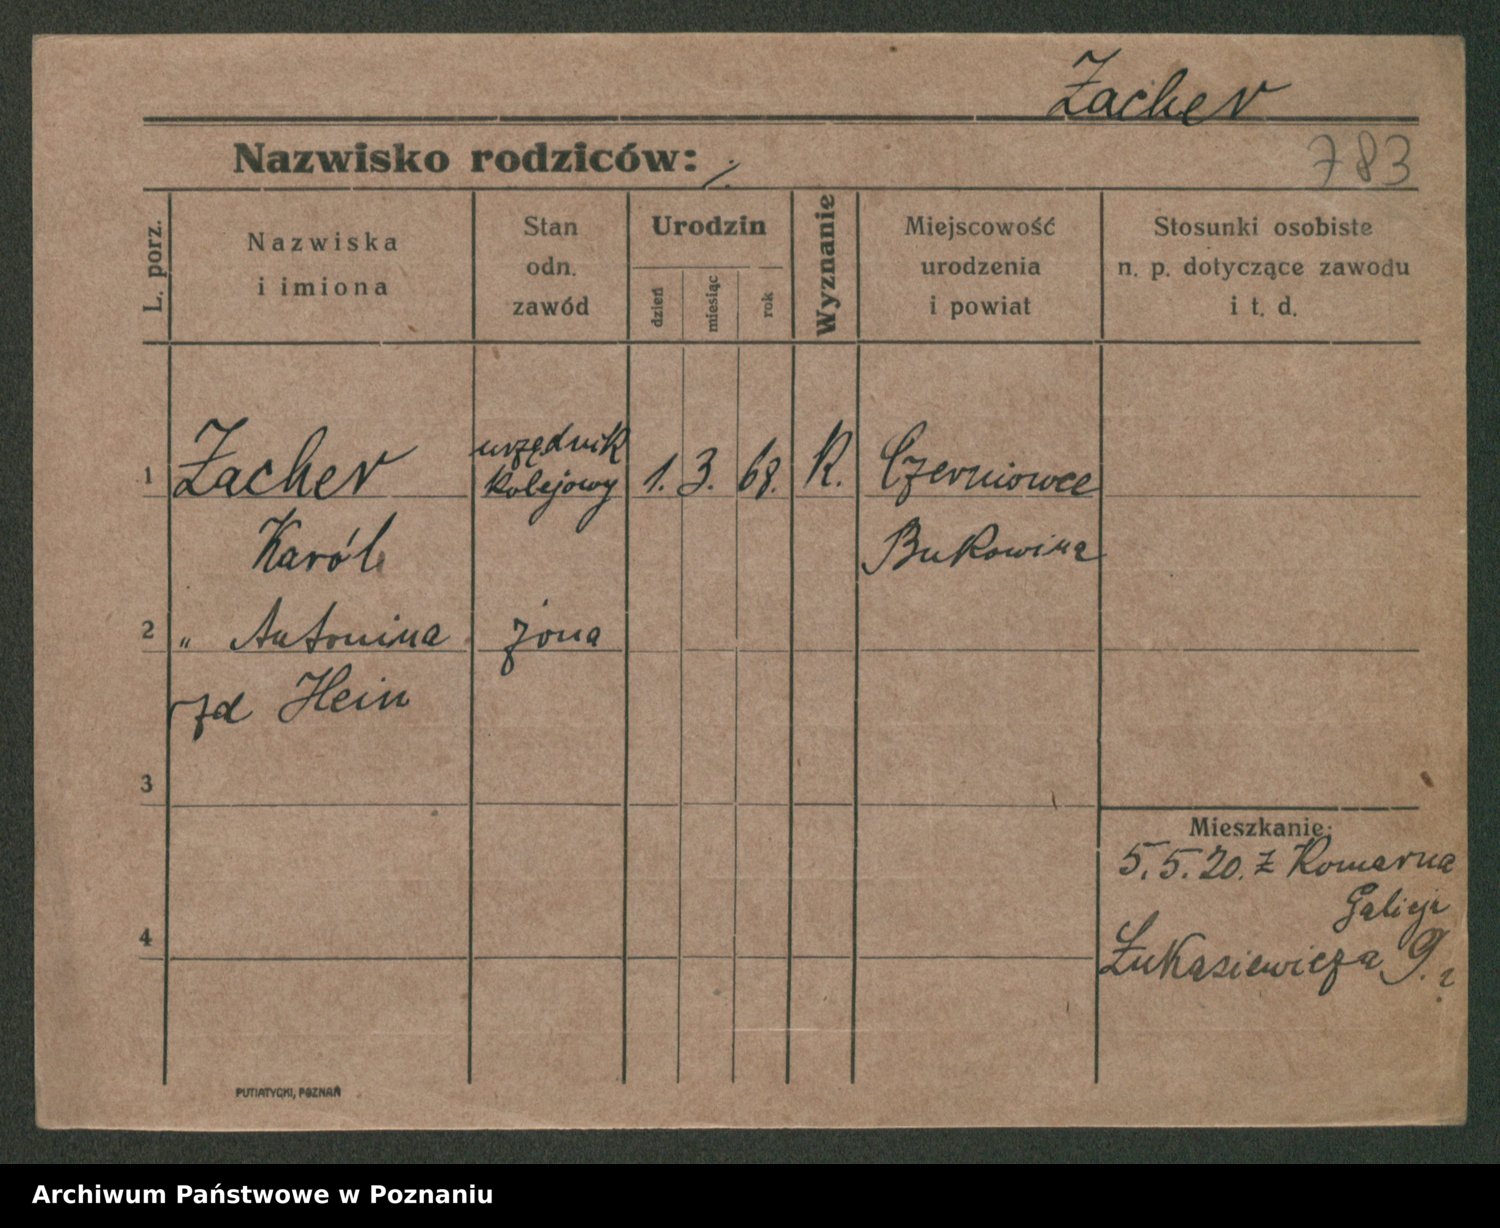 Zacher
Nazwisko rodziców: ./.
783
L. porz.
Nazwiska
i imiona
Stan
odn.
zawód
Urodzin
dzień
miesiąc
rok
Wyznanie
Miejscowość
urodzenia
i powiat
Stosunki osobiste
n. p. dotyczące zawodu
i t. d.
1 Zacher urzędnik kolejowy 1. 3. 68. R. Czerniowce
Karól Bukowina
2 „ Antonina żona
rzd Hein
3
Mieszkanie:
5.5.20. z Komarna
Galicji
4
Łukasiewicza 9.
PUTIATYCKI, POZNAŃ
Archiwum Państwowe w Poznaniu